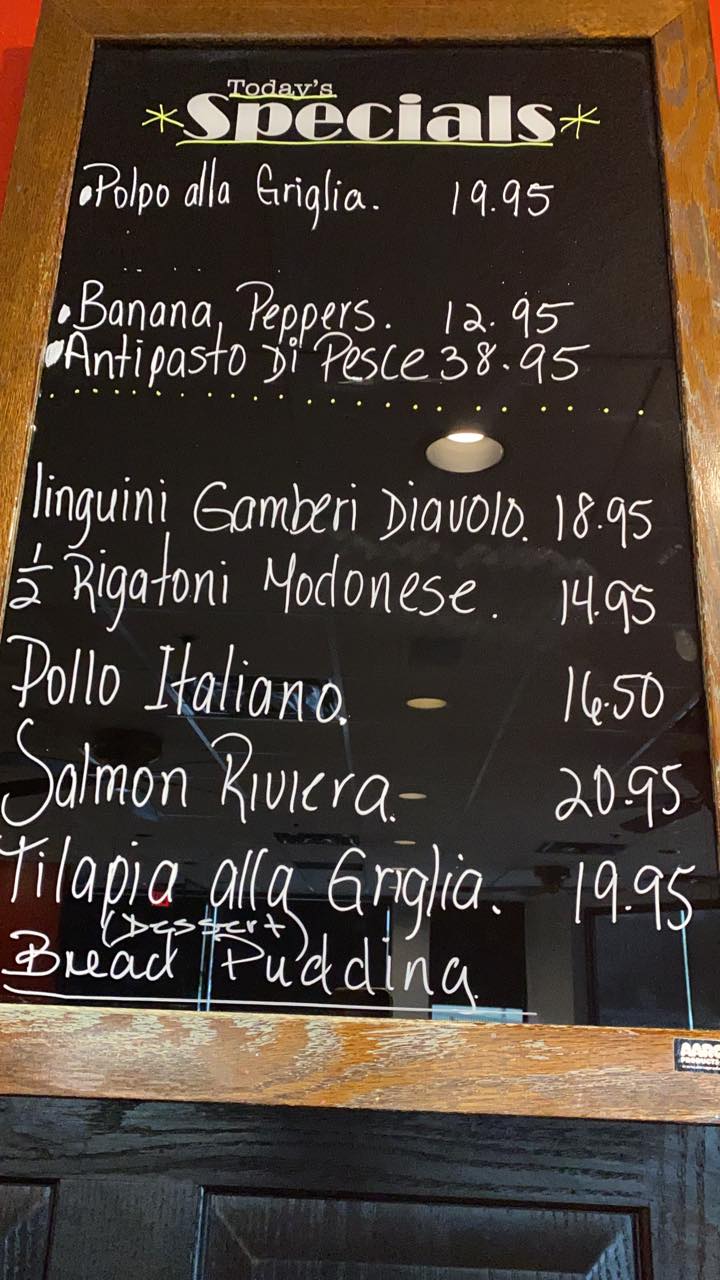 Today's
*Specials*
•Polpo alla Griglia. 19.95
•Banana Peppers. 12.95
•Antipasto Di Pesce 38.95
linguini Gamberi Diavolo. 18.95
1/2 Rigatoni Modonese. 14.95
Pollo Italiano. 16.50
Salmon Riviera. 20.95
Tilapia alla Griglia. 19.95
(Dessert)
Bread Pudding